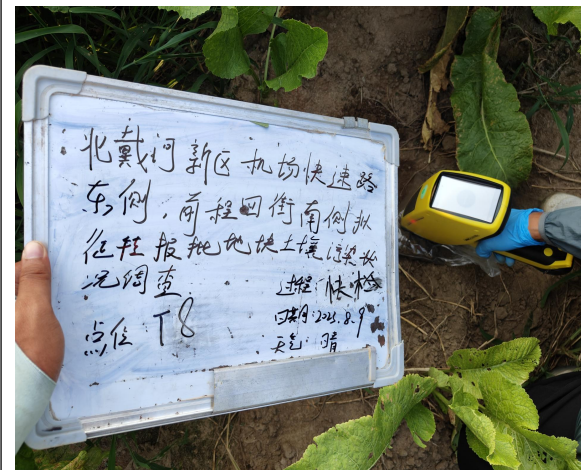 北戴河新区机场快速路
东侧,前程四街南侧拟
征转报批地块土壤污染状
况调查
过程:快检
点位:T8
日期:2025.8.9
天气:晴